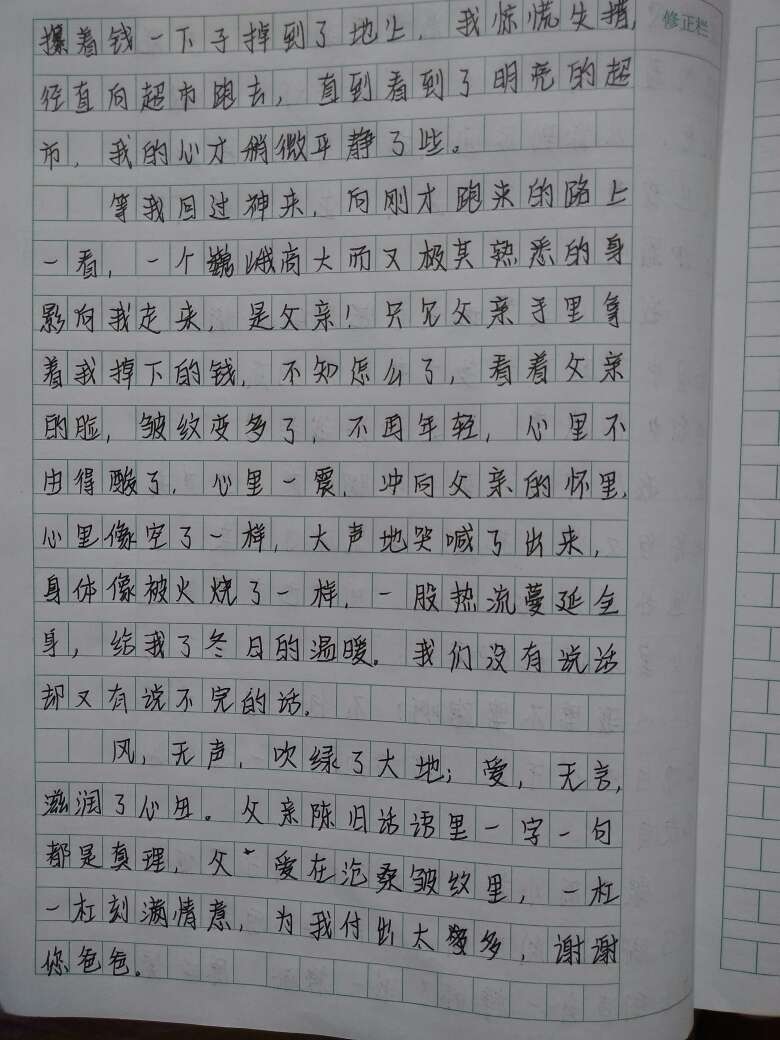 攥着钱一下子掉到了地上,我惊慌失措,
修正栏
径直向超市跑去,直到看到了明亮的超
市,我的心才稍微平静了些。
等我回过神来,向刚才跑来的路上
一看,一个巍峨高大而又极其熟悉的身
影向我走来,是父亲!只见父亲手里拿
着我掉下的钱,不知怎么了,看着父亲
的脸,皱纹变多了,不再年轻,心里不
由得酸了,心里一震,冲向父亲的怀里,
心里像空了一样,大声地哭喊了出来,
身体像被火烧了一样,一股热流蔓延全
身,给我了冬日的温暖。我们没有说话
却又有说不完的话.
风,无声,吹绿了大地;爱,无言,
滋润了心田。父亲陈旧话语里一字一句
都是真理,父爱在沧桑皱纹里,一杠
一杠刻满情意,为我付出太多,谢谢
你爸爸.